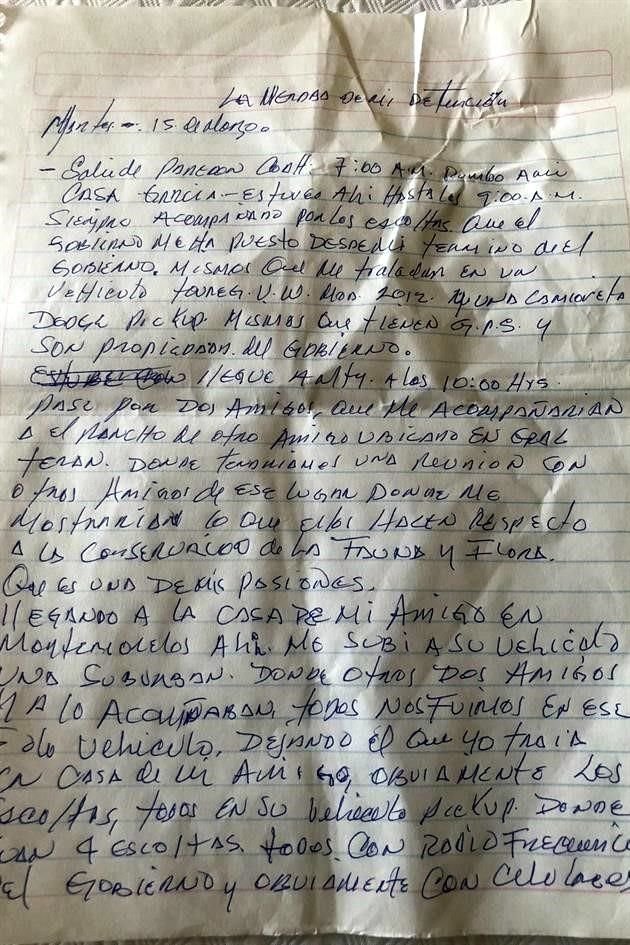 LA VERDAD DE MI DETENCIÓN
Martes -. 15 de Marzo.
- Salí de PAREDON COAH. 7:00 A.M. Rumbo A mi
CASA GARCIA.- ESTUVE AHI HASTA LAS 9:00 A.M.
SIEMPRE ACOMPAÑADO POR LOS ESCOLTAS QUE el
GOBIERNO ME HA PUESTO DESPE termino del
GOBIERNO. MISMOS QUE ME trasladan EN UN
VEHICULO TOUREG. V.W. MOD. 2012. y UNA CAMIONETA
DODGE PICKUP MISMAS QUE TIENEN G.P.S. y
SON PROPIEDAD del GOBIERNO.
llEGUE A MTY. A las 10:00 Hrs.
PASE POR DOS AMIGOS, QUE ME ACOMPAÑARIAN
A el RANCHO DE OTRO AMIGO UBICADO EN GRAL
TERAN. DONDE TENDRIAMOS UNA REUNION CON
OTROS AMIGOS DE ESE LUGAR DONDE ME
MOSTRARIAN lo QUE ellos HACEN RESPECTO
A LA CONSERVACIOO de LA FAUNA y FLORA.
QUE ES UNA DE MIS PASIONES.
llEGANDO A LA CASA DE MI AMIGO EN
MONTEMORELOS AHI. ME SUBI A SU VEHICULO
UNA SUBURBAN. DONDE OTROS DOS AMIGOS
YA lo ACOMPAÑABAN, TODOS NOS FUIMOS EN ESE
solo VEHICULO, DEJANDO el QUE YO TRAIA
EN CASA de mi AMIGO, OBVIAMENTE LOS
ESCOLTAS, TODOS EN SU VEHICULO PICKUP. DONDE
IBAN 4 ESCOLTAS. TODOS. CON RADIO FRECUENCIA
DEL GOBIERNO y OBVIAMENTE CON CELULARES